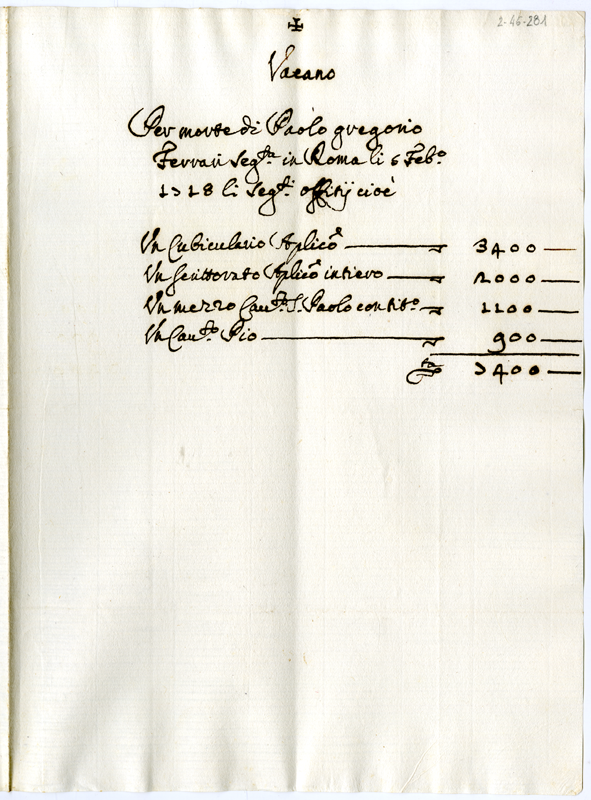 2-46-281
✠
Vacano
Per morte di Paolo gregorio
Ferrari seg.ta in Roma li 6 Feb.o
1718 li seg.ti offitij cioè
Un Cubiculario Aplico 3400
Un scrittorato Aplico intiero 2000
Un mezzo Cau.to S. Paolo con tit.o 1100
Un Cau.to Pio 900
7400